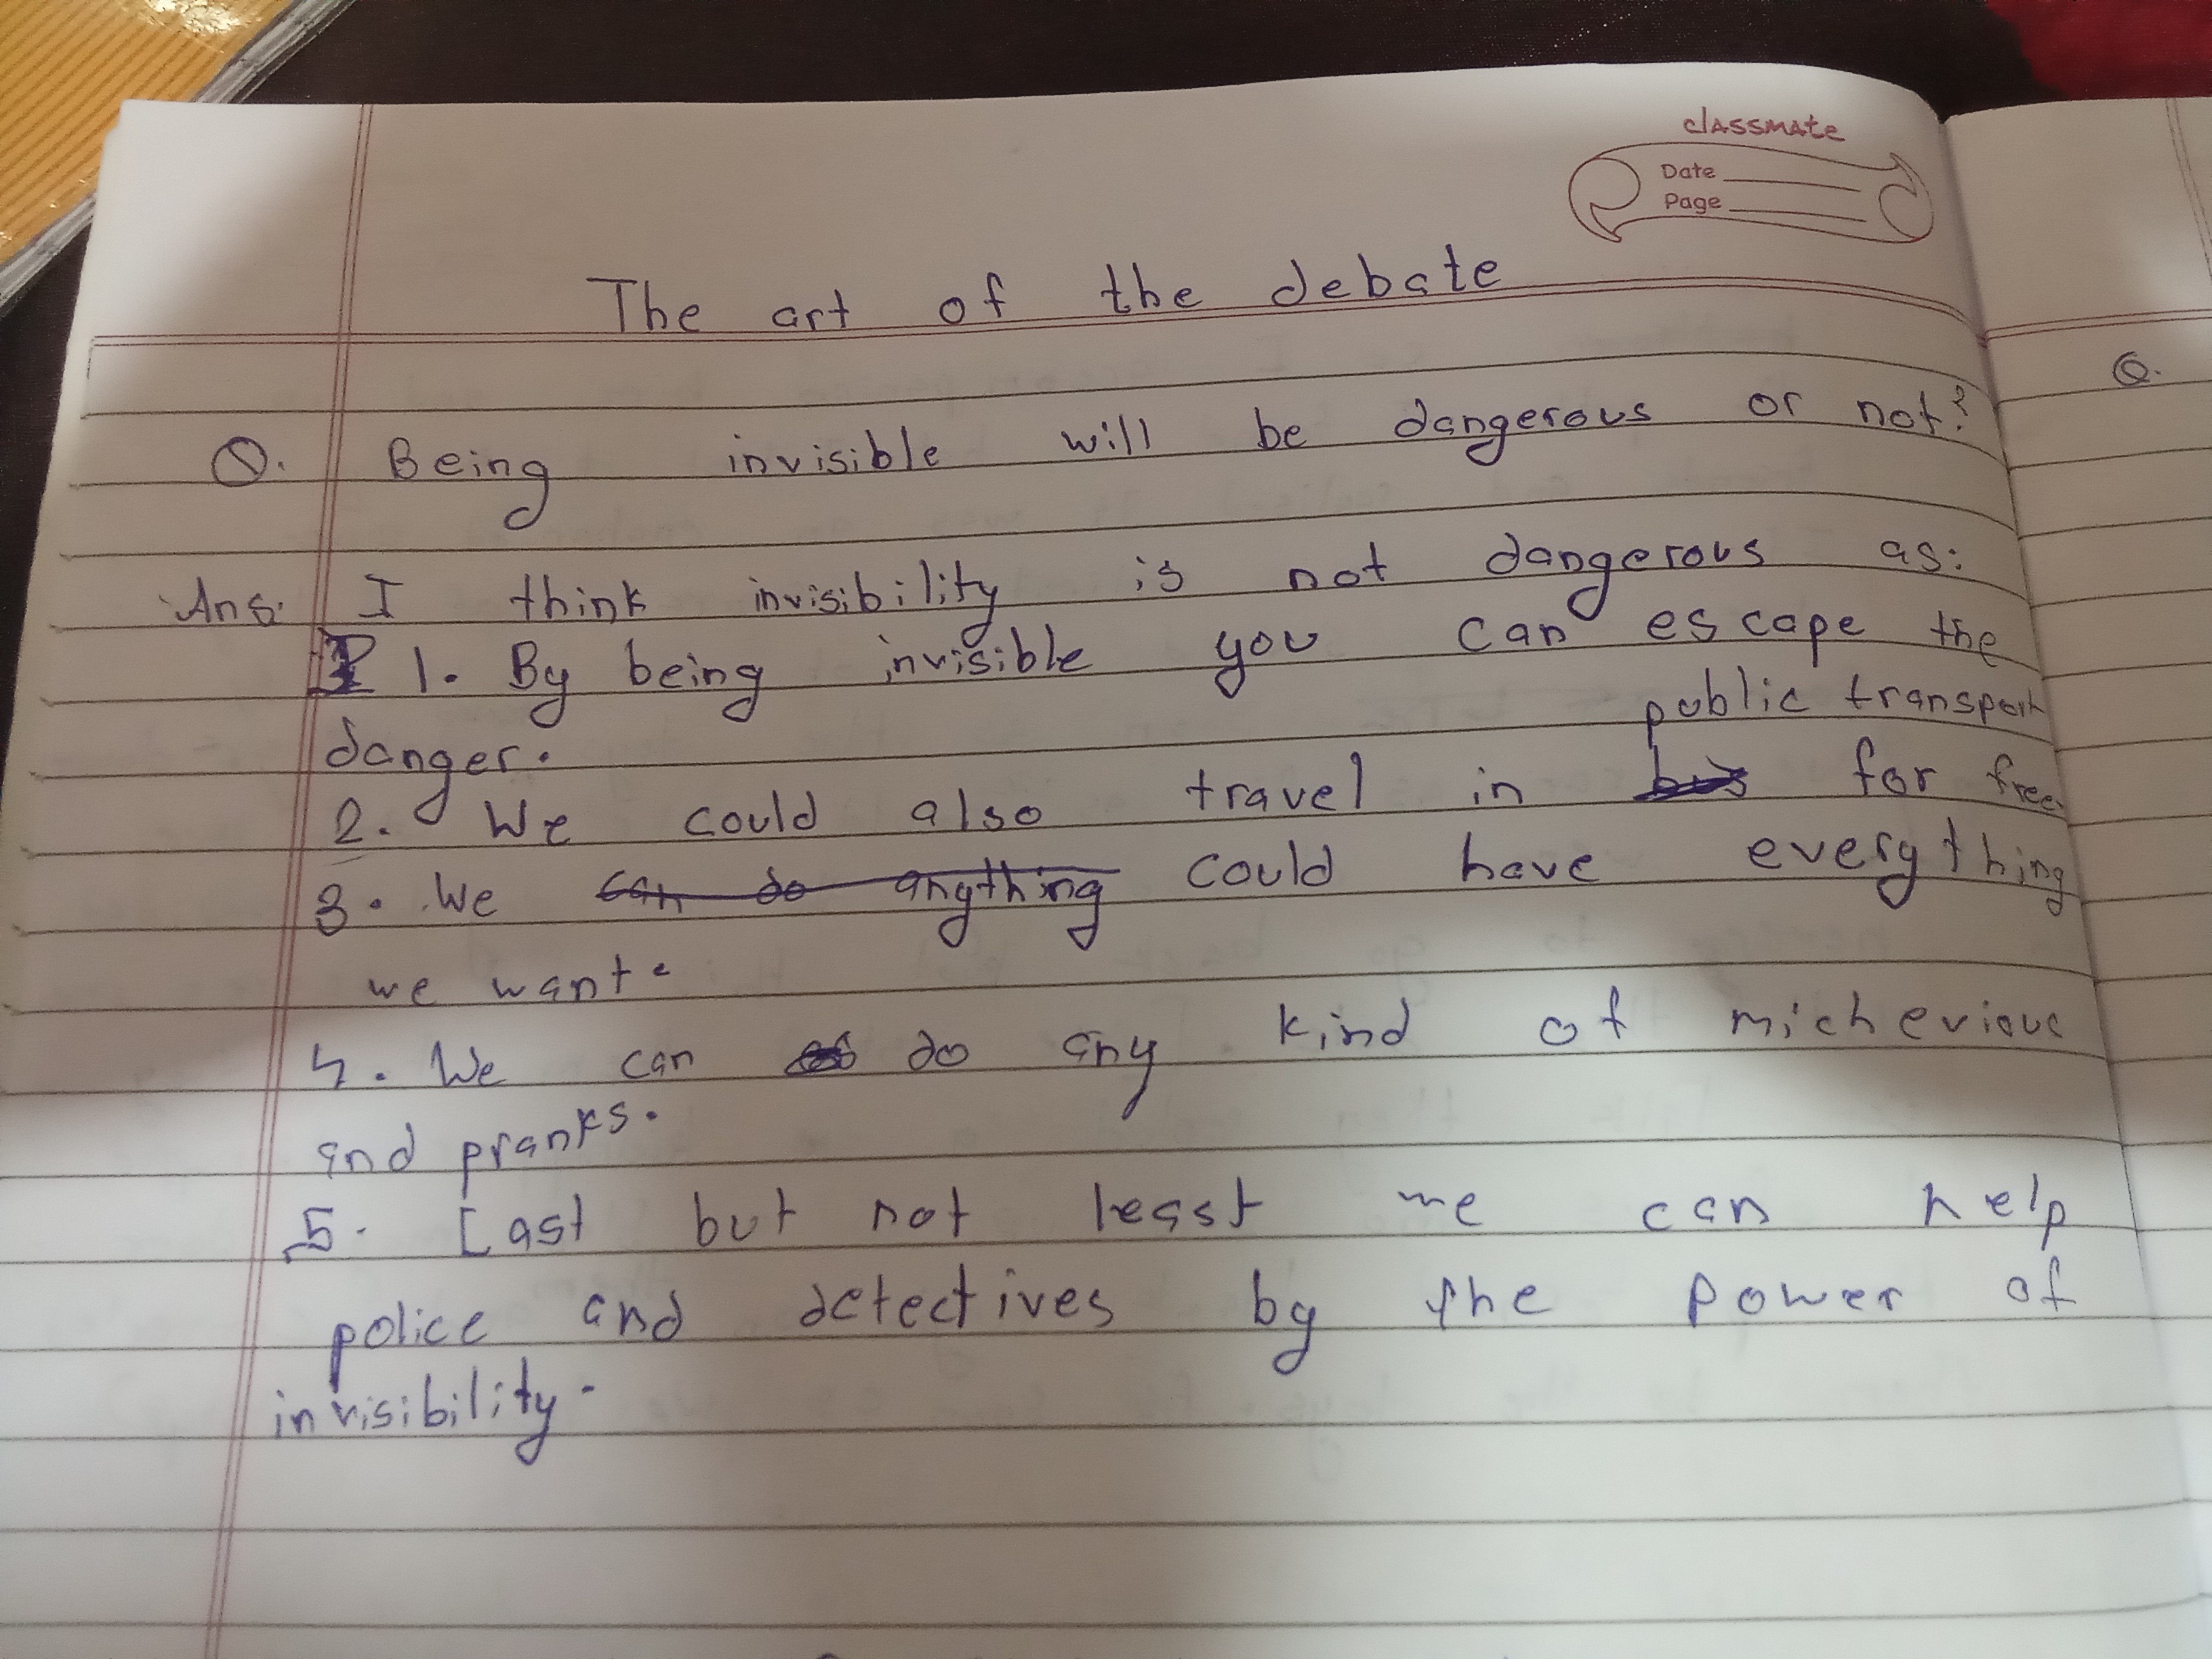 classmate
Date
Page
The art of the debate
Q. Being invisible will be dangerous or not?
Ans: I think invisibility is not dangerous as:
1. By being invisible you can escape the
danger.
public transport
2. We could also travel in bus for free.
3. We can do anything could have everything
we want.
4. We can do any kind of michevious
and pranks.
5. Last but not least we can help
police and detectives by the power of
invisibility.
Q.